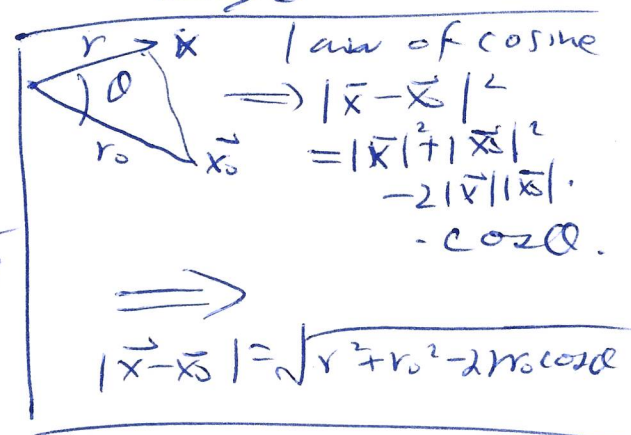 r x⃗ law of cosine
θ ⟹ |x̄ - x⃗₀|²
r₀ x⃗₀ = |x⃗|² + |x⃗₀|²
-2|x⃗||x⃗₀|·
· cosθ.
⟹
|x⃗ - x̄₀| = √(r² + r₀² - 2rr₀cosθ)